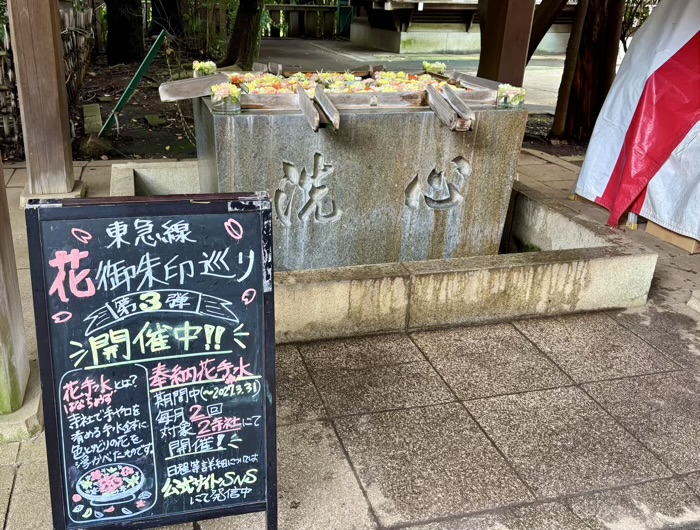 洗心
東急線
花御朱印巡り
第3弾
開催中!!
花手水とは?
はなちょうず
寺社で手や口を
清める手水鉢に
色とりどりの花を
浮かべたものです。
奉納花手水
期間中(〜2027.3.31)
毎月2回
対象2寺社にて
開催!
日程等詳細については
公式サイト・SNS
にて発信中